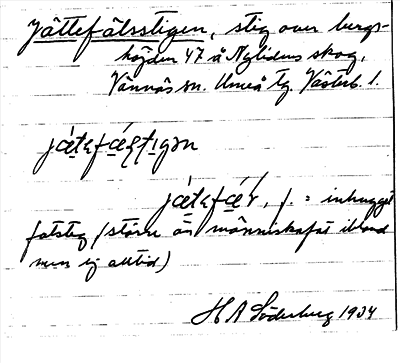 Jättefätsstigen, stig over bergs-
höjden 47 å Nylidens skog,
Vännäs sn. Umeå tg. Västerb. l.
jä́tefä́tstigən
jä́tefä́t, f. = inhugget
fotsteg (större än människofot ibland
men ej alltid)
H A Söderberg 1934